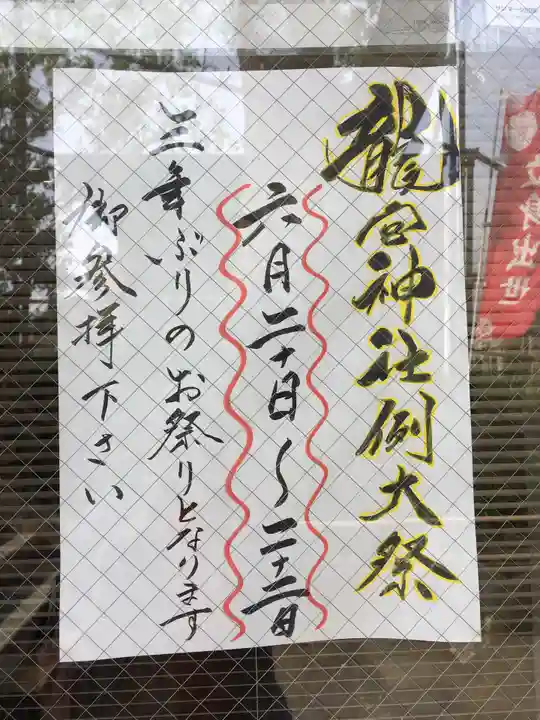 龍宮神社例大祭
六月二十日〜二十二日
三年ぶりのお祭りとなります
御参拝下さい
立身出世